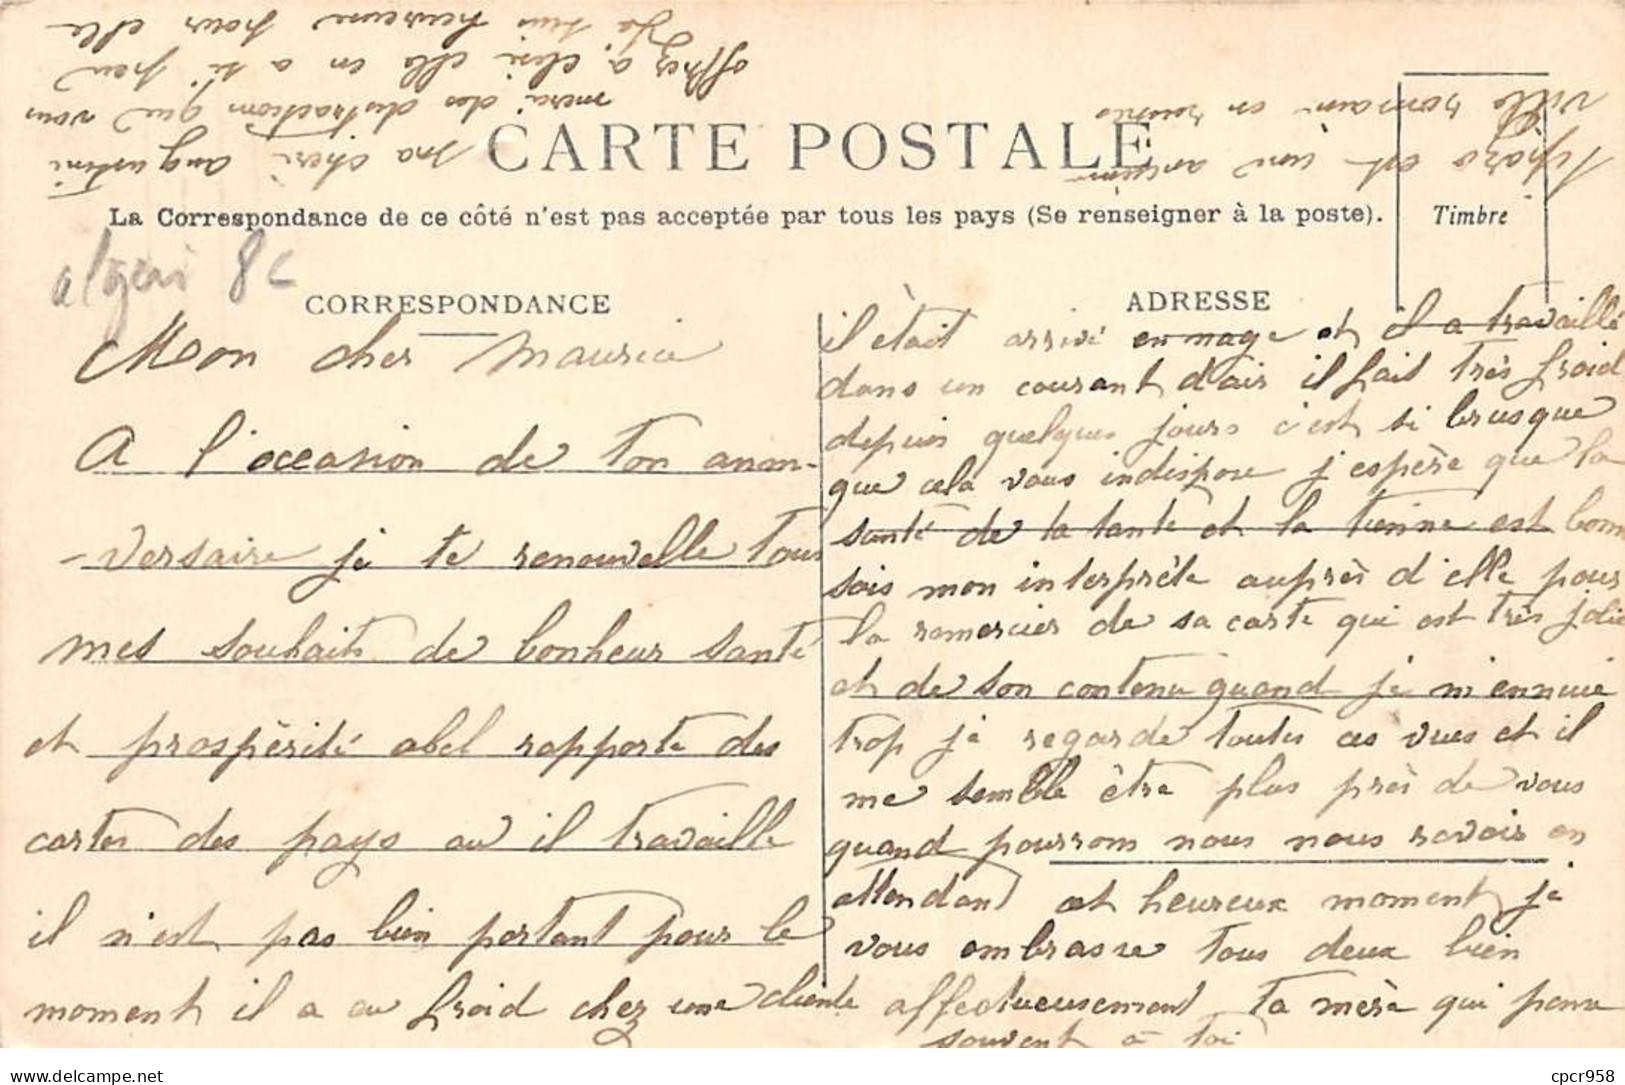 CARTE POSTALE
La Correspondance de ce côté n'est pas acceptée par tous les pays (Se renseigner à la poste).
Timbre
CORRESPONDANCE
ADRESSE
8c
Mon cher Maurice
A l'occasion de ton anni-
-versaire je te renouvelle tous
mes souhaits de bonheur santé
et prospérité abel rapporte des
cartes des pays ou il travaille
il n'est pas bien portant pour le
moment il a eu froid chez une cliente
il était arrivé en nage et il a travaillé
dans un courant d'air il fait très froid
depuis quelques jours c'est si brusque
que cela vous indispose j espère que la
santé de ta tante et la tienne est bonne
sois mon interprète auprès d'elle pour
la remercier de sa carte qui est très jolie
et de son contenu quand je m'ennuie
trop je regarde toutes ces vues et il
me semble être plus près de vous
quand pourrons nous nous revoir en
attendant cet heureux moment je
vous embrasse tous deux bien
affectueusement ta mère qui pense
souvent à toi
Tipaza est une ancienne
ville romaine en ruines
ma chère augustine
merci des distractions que vous
offrez à elise elle en a si peu
je suis heureuse pour elle
Delcampe.net
cpcr958